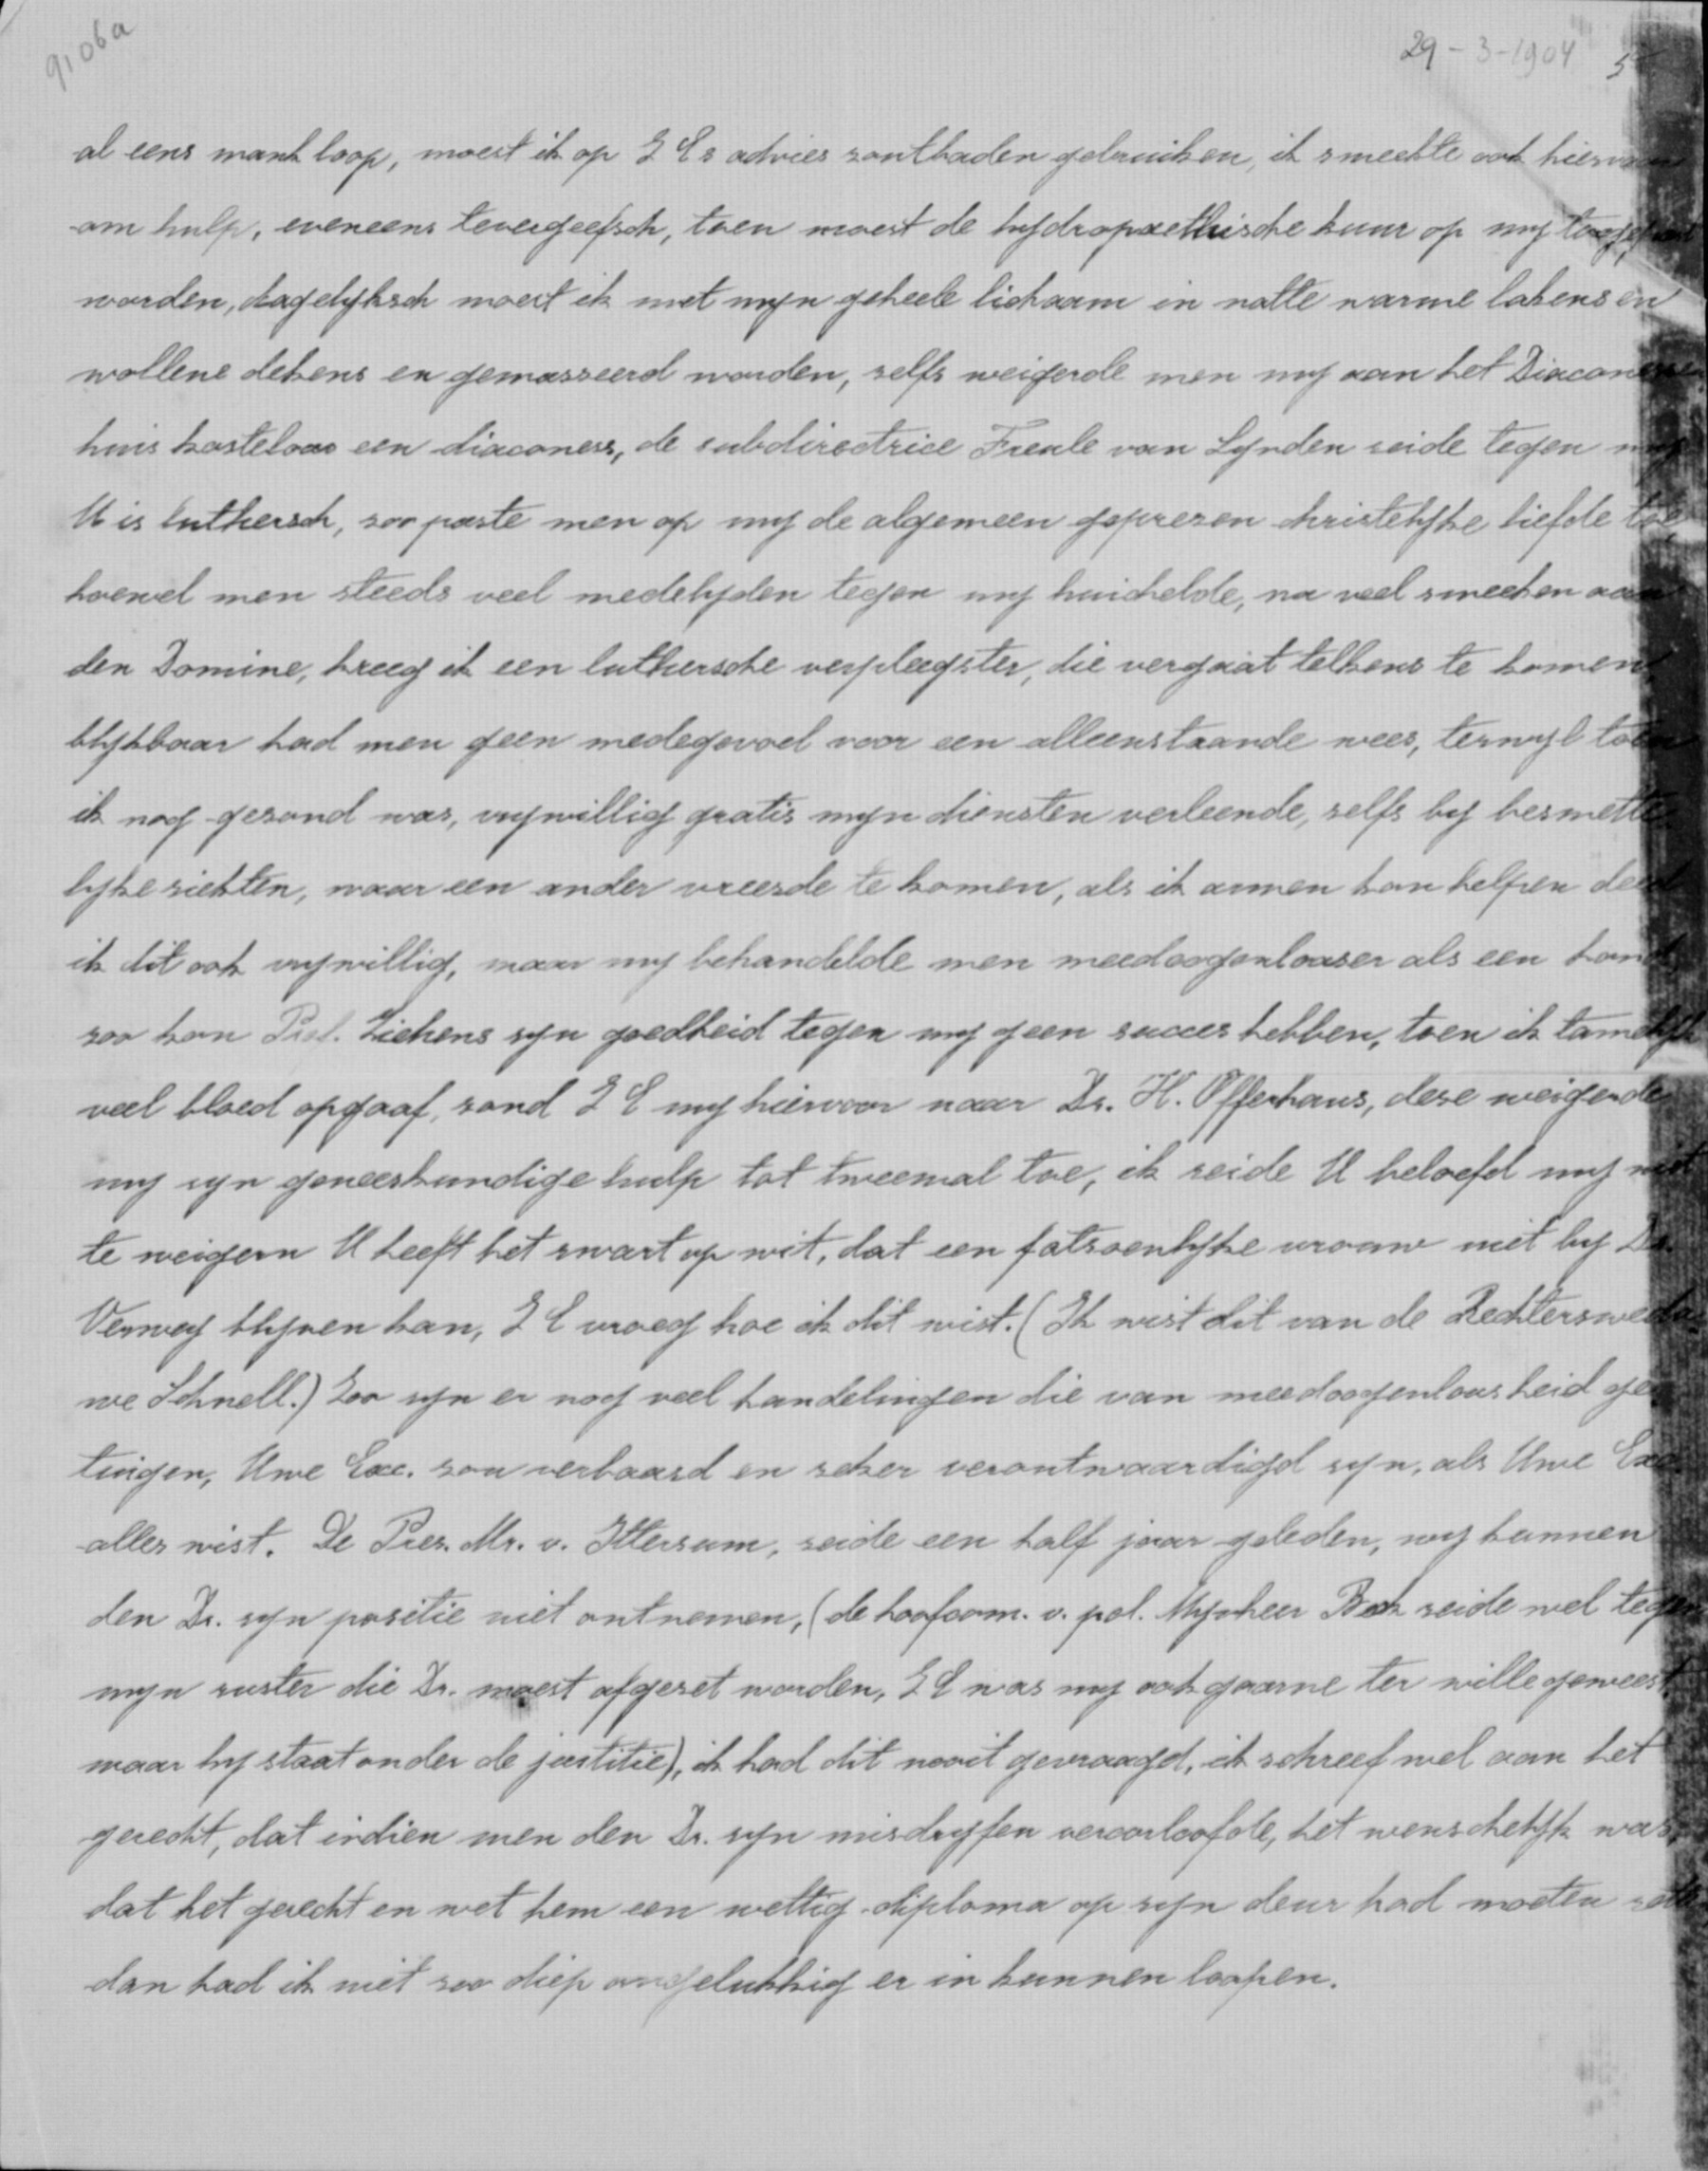 9106a
29-3-1904
al eens mank loop, moest ik op Z Es advies zoutbaden gebruiken, ik smeekte ook hiervoor
om hulp, eveneens tevergeefsch, toen moest de hydropaethische kuur op my toegepast
worden, dagelyksch moest ik met myn geheele lichaam in natte warme lakens en
wollene dekens en gemasseerd worden, zelfs weigerde men my aan het Diaconessen
huis kosteloos een diaconess, de subdirectrice Freule van Lynden zeide tegen my
U is luthersch, zoo paste men op my de algemeen geprezen christelyke liefde toe
hoewel men steeds veel medelyden tegen my huichelde, na veel smeeken aan
den Domine, kreeg ik een luthersche verpleegster, die vergaat telkens te komen,
blykbaar had men geen medegevoel voor een alleenstaande wees, terwyl toen
ik nog gezond was, vrywillig gratis myn diensten verleende, zelfs by besmette
lyke ziekten, waar een ander vreesde te komen, als ik armen kon helpen deed
ik dit ook vrywillig, maar my behandelde men meedoogenloozer als een hond
zoo kon Prof. Ziehens zyn goedheid tegen my geen succes hebben, toen ik tamelyk
veel bloed opgaaf, zond Z E my hiervoor naar Dr. H. Offerhaus, deze weigerde
my zyn geneeskundige hulp tot tweemal toe, ik zeide U beloefd my niet
te weigern U heeft het zwart op wit, dat een fatsoenlyke vrouw niet by Dr.
Verwey blyven kan, Z E vroeg hoe ik dit wist. (Ik wist dit van de Rechterswedu
we Schnell.) Zoo zyn er nog veel handelingen die van meedoogenloosheid ge
tuigen, Uwe Exc. zou verbaasd en zeker verontwaardigd zyn, als Uwe Exc.
alles wist. De Pres. Mr. v. Ittersum, zeide een half jaar geleden, wy kunnen
den Dr. zyn positie niet ontnemen, (de hoofcom. v. pol. Mynheer Bok zeide wel tegen
myn zuster die Dr. moest afgezet worden, Z E was my ook gaarne ter wille geweest,
maar hy staat onder de justitie), ik had dit nooit gevraagd, ik schreef wel aan het
gerecht, dat indien men den Dr. zyn misdryfen veroorloofde, het wenschelyk was,
dat het gerecht en wet hem een wettig diploma op zyn deur had moeten
dan had ik niet zoo diep ongelukkig er in kunnen loopen.